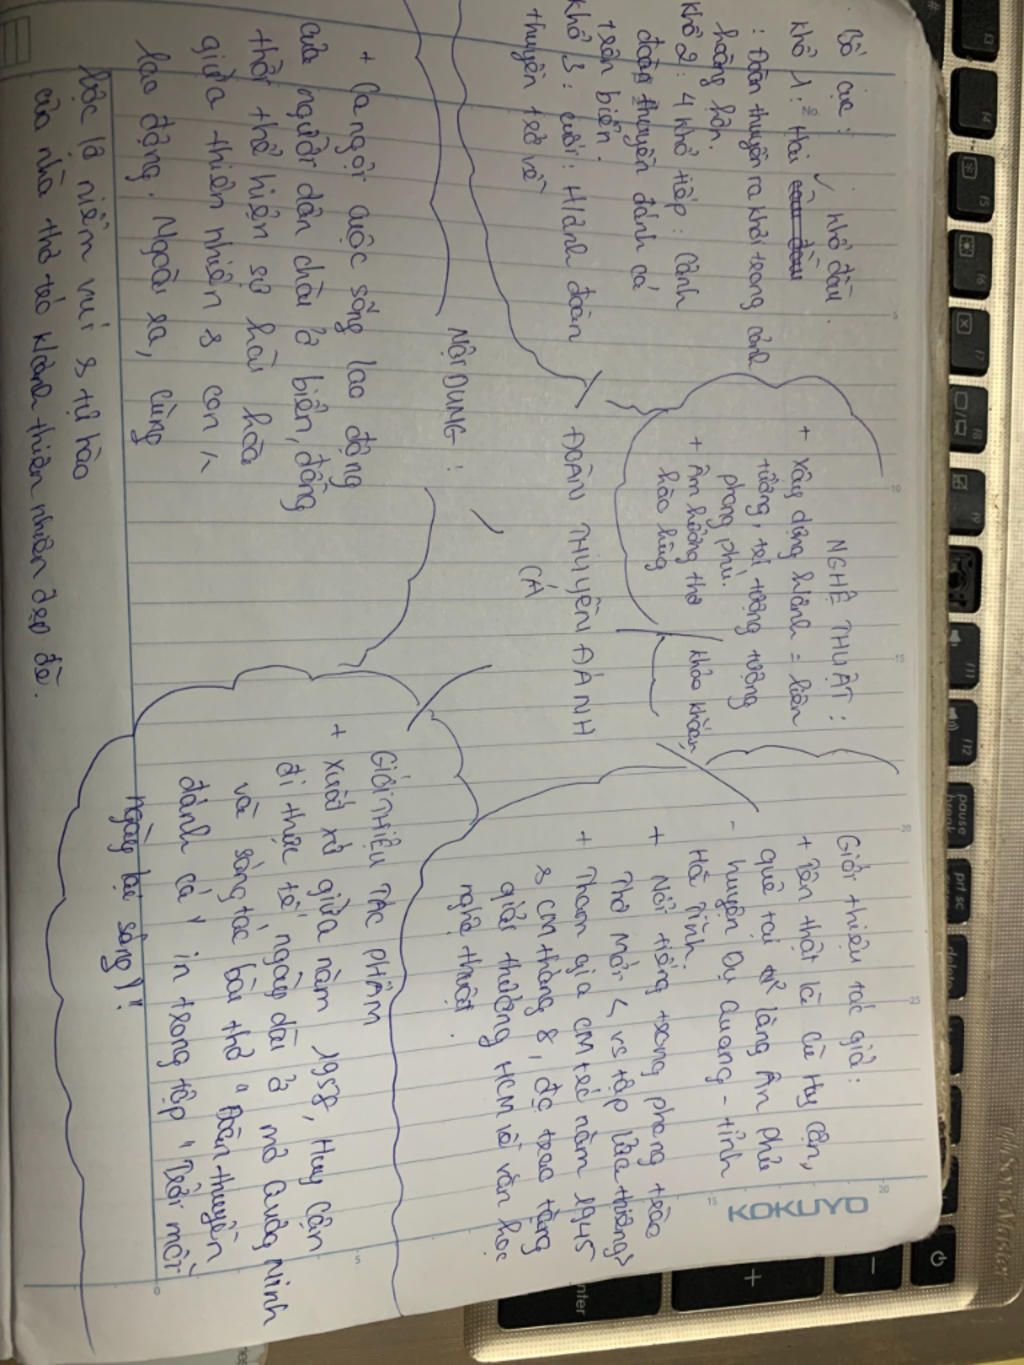 Bố cục:
Khổ 1: Hai khổ đầu.
: Đoàn thuyền ra khơi trong cảnh
hoàng hôn.
Khổ 2: 4 khổ tiếp: Cảnh
đoàn thuyền đánh cá
trên biển.
Khổ 3: cuối: Hình đoàn
thuyền trở về
NGHỆ THUẬT:
+ Xây dựng hình = liên
tưởng, trí tưởng tượng
phong phú.
+ Âm hưởng thơ khỏe khoắn,
hào hùng
Giới thiệu tác giả:
+ Tên thật là Cù Huy Cận,
quê tại làng Ân Phú
- huyện Vụ Quang - tỉnh
Hà Tĩnh.
+ Nổi tiếng trong phong trào
Thơ Mới < vs tập Lửa thiêng>
+ Tham gia CM trc năm 1945
& CM tháng 8, đc trao tặng
giải thưởng HCM về văn học
nghệ thuật.
ĐOÀN THUYỀN ĐÁNH
CÁ
NỘI DUNG:
+ Ca ngợi cuộc sống lao động
của người dân chài ở biển, đồng
thời thể hiện sự hài hòa
giữa thiên nhiên & con
lao động. Ngoài ra, cũng
bộc lộ niềm vui & tự hào
của nhà thơ trc khành thiên nhiên đẹp đẽ.
GIỚI THIỆU TÁC PHẨM
+ Xuất xứ giữa năm 1958, Huy Cận
đi thực tế ngày dài ở mỏ Quảng Ninh
và sáng tác bài thơ "Đoàn thuyền
đánh cá" in trong tập "Trời mỗi
ngày lại sáng)".
KOKUYO